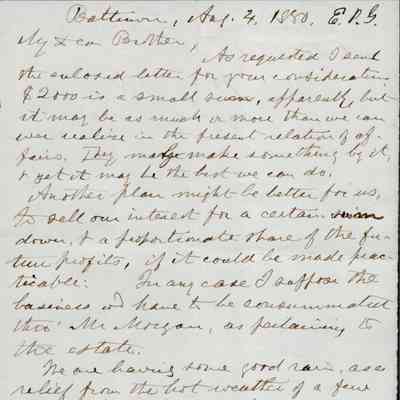 Baltimore, Aug. 4, 1880. E. P. G.
My Dear Brother,
As requested I send
the enclosed letter for your consideration.
$2000 is a small sum, apparently, but
it may be as much or more than we can
ever realize in the present relation of af-
fairs. They may make something by it,
& yet it may be the best we can do.
Another plan might be better for us,
to sell our interest for a certain sum
down, & a proportionate share of the fu-
ture profits, if it could be made prac-
ticable. In any case I suppose the
business wd have to be consummated
thro' Mr Morgan, as pertaining to
the estate.
We are having some good rain, as a
relief from the hot weather of a few